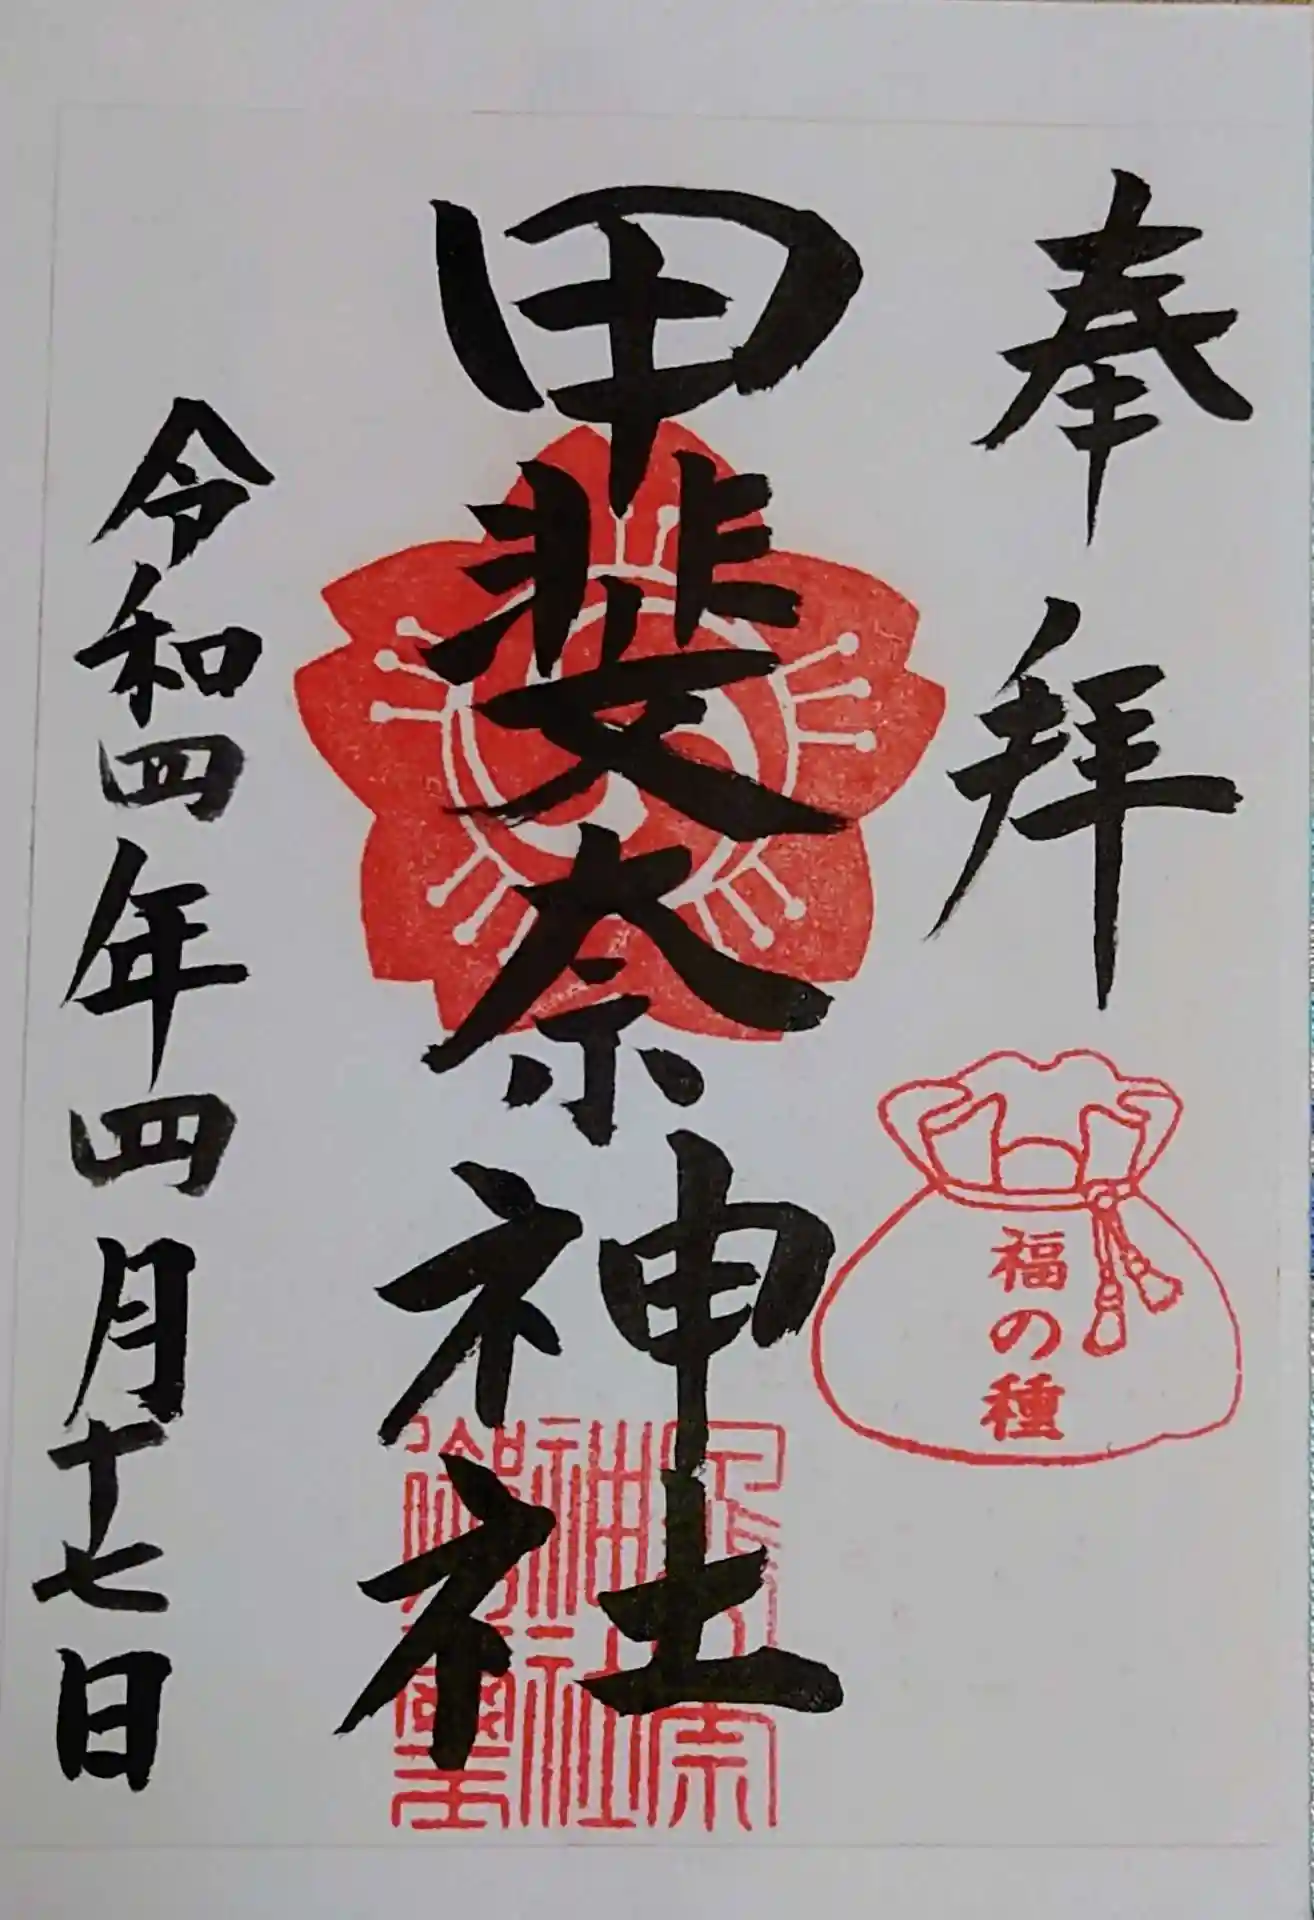 奉拝
福の種
甲斐奈神社
神社
令和四年四月十七日